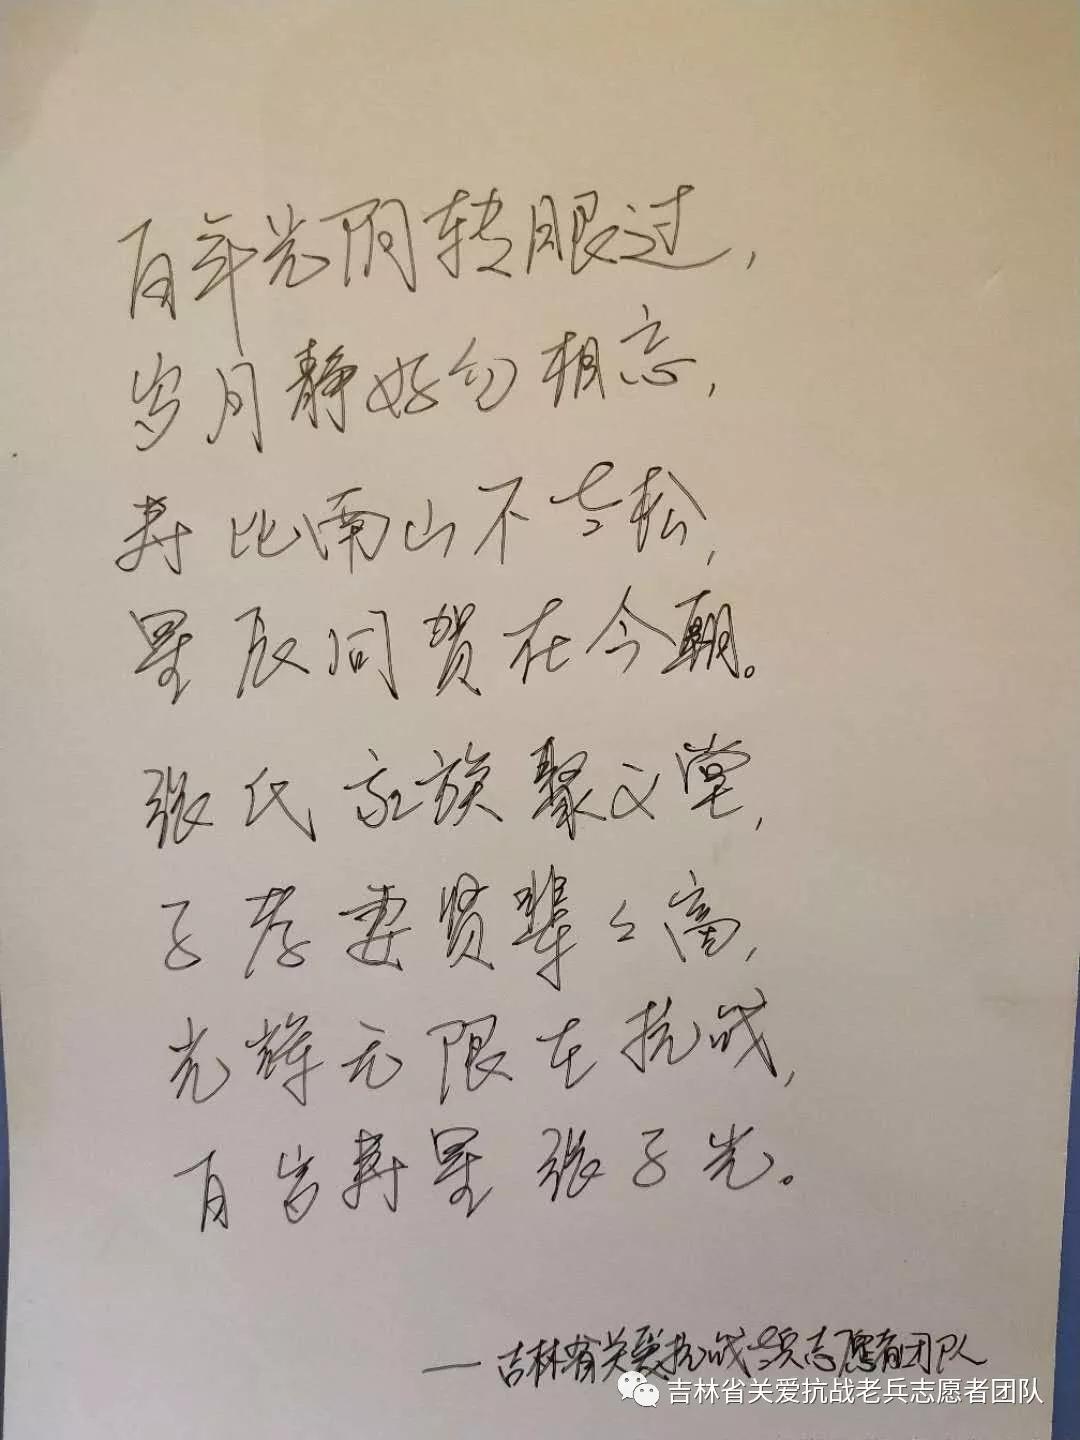 百年光阴转眼过,
岁月静好勿相忘,
寿比南山不老松,
星辰同贺在今朝。
张氏家族聚文堂,
子孝妻贤辈々高,
光辉无限在抗战,
百岁寿星张子光。
—吉林省关爱抗战老兵志愿者团队
吉林省关爱抗战老兵志愿者团队